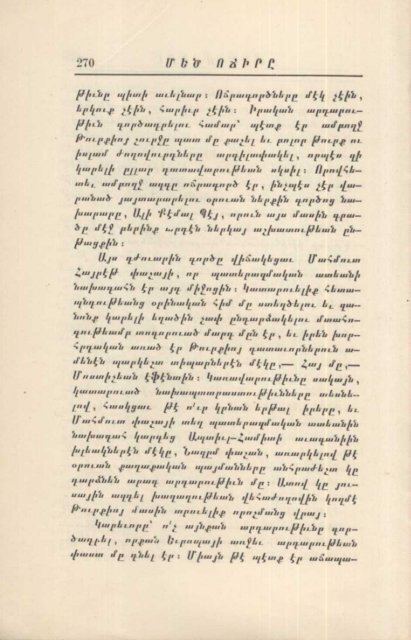 270 ՄԵԾ ՈՃԻՐԸ
թիւնը պիտի աւելնար։ Ոճրագործները մէկ չէին,
երկուք չէին, հարիւր չէին։ Իրական արդարու-
թիւն գործադրելու համար՝ պէտք էր ամբողջ
Թուրքիոյ շուրջը պատ մը քաշել եւ բոլոր Թուրք ու
իսլամ ժողովուրդները արգիլափակել, որպէս զի
կարելի ըլլար դատավարութեան սկսիլ։ Որովհե-
տեւ ամբողջ ազգը ոճրագործ էր, ինչպէս չէր վա-
րանած յայտարարելու օրուան ներքին գործոց նա-
խարարը, Ալի Քէմալ Պէյ, որուն այս մասին գրա-
ծը մէջ բերինք արդէն ներկայ աշխատութեան ըն-
թացքին։
Այս դժուարին գործը վիճակեցաւ Մահմուտ
Հայրէթ փաշայի, որ պատերազմական ատեանի
նախագահն էր այդ միջոցին։ Կատարուելիք հետա-
պնդութեանց օրինական հիմ մը ստեղծելու եւ զա-
նոնք կարելի եղածին չափ ընդարձակելու մտահո-
գութեամբ տոգորուած մարդ մըն էր, եւ իրեն խոր-
հրդական առած էր Թուրքիոյ դատաւորներուն ա-
մենէն պարկեշտ տիպարներէն մէկը,— Հայ մը,—
Մոստիչեան էֆէնտին։ Կառավարութիւնը սակայն,
կատարուած նախապատրաստութիւնները տեսնե-
լով, հասկցաւ թէ ո՛ւր կրնան երթալ իրերը, եւ
Մահմուտ փաշայի տեղ պատերազմական ատեանին
նախագահ կարգեց Ապտիւլ-Համիտի աւագանիին
խլեակներէն մէկը, Նազըմ փաշան, առարկելով թէ
օրուան քաղաքական պայմանները անհրաժեշտ կը
դարձնեն արագ արդարութիւն մը։ Ատով կը յու-
սային ազդել խաղաղութեան վեհաժողովին կողմէ
Թուրքիոյ մասին տրուելիք որոշմանց վրայ։
Կարեւորը՝ ո՛չ այնքան արդարութիւնը գոր-
ծադրել, որքան Եւրոպայի առջեւ արդարութեան
փաստ մը դնել էր։ Միայն թէ պէտք էր աճապա-